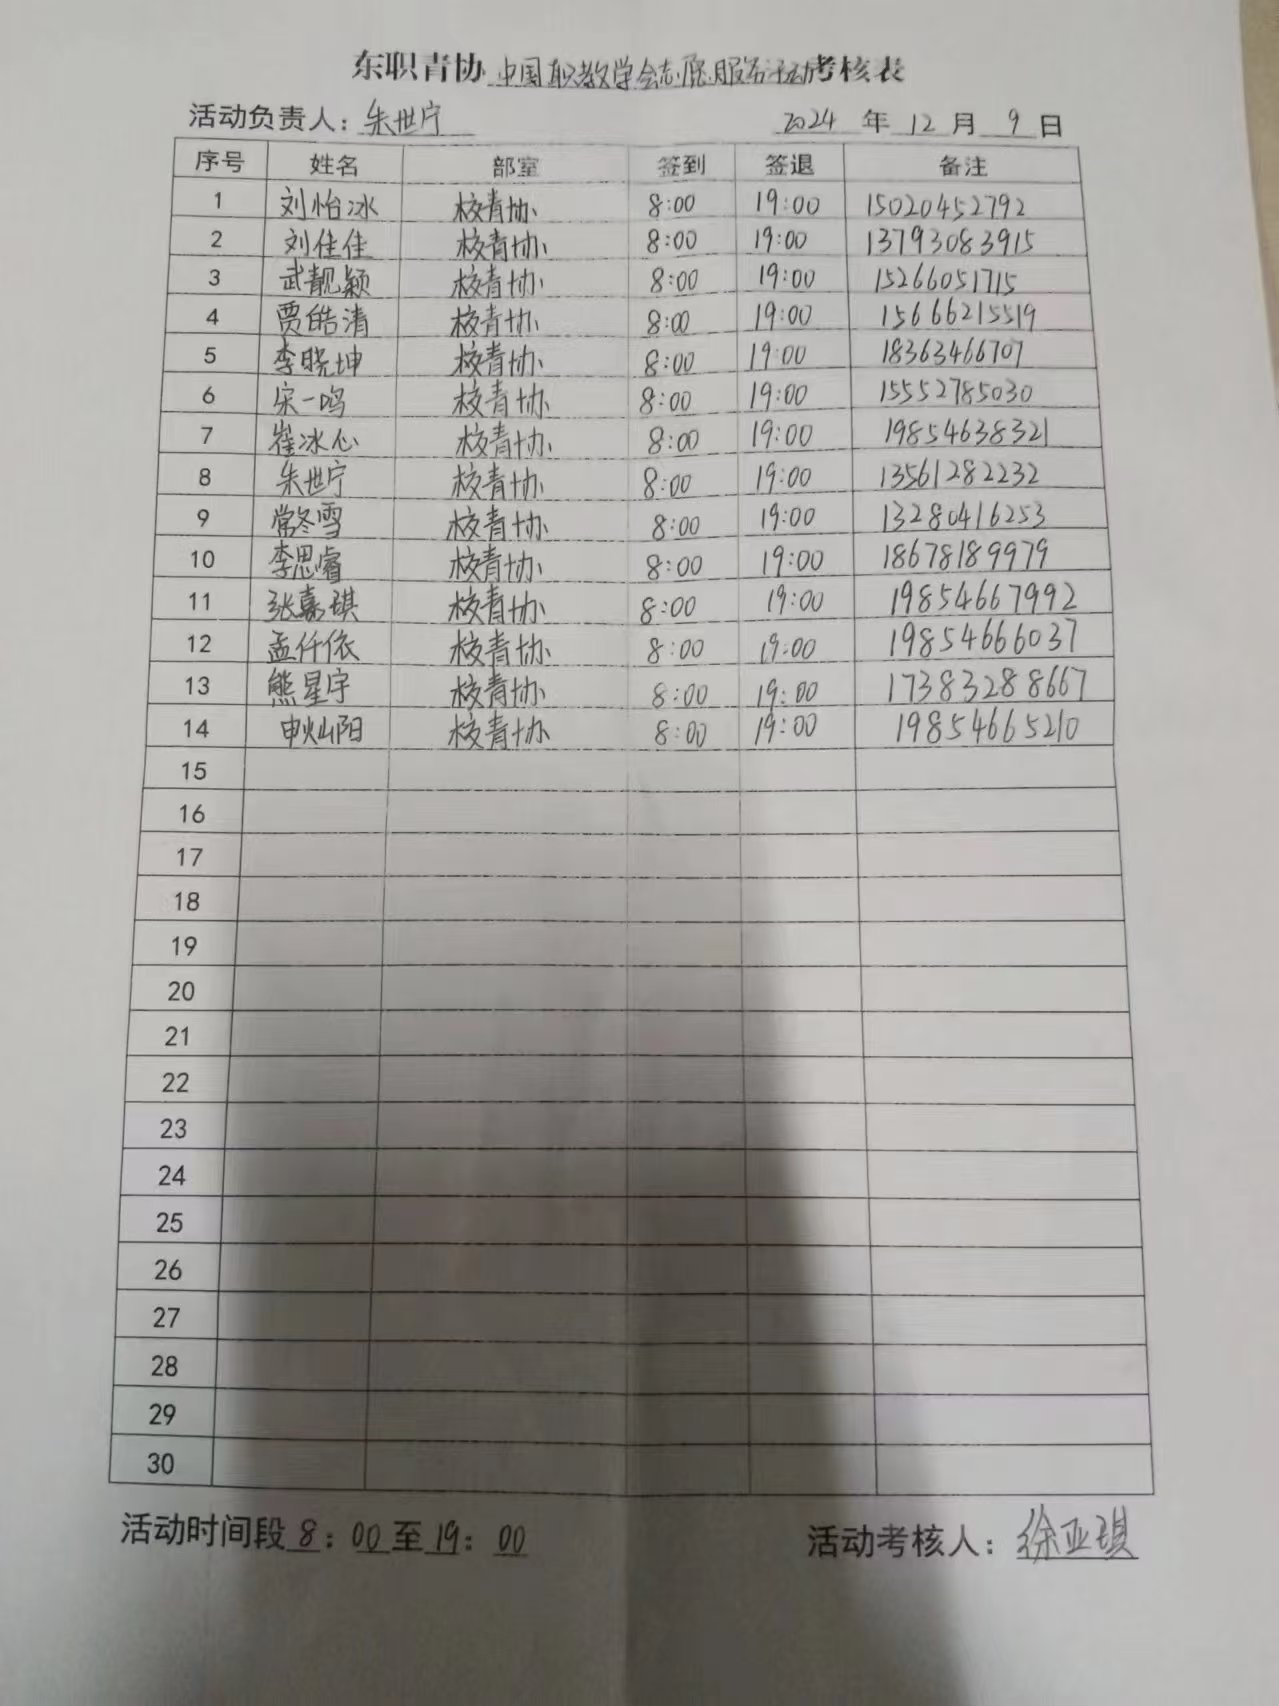 东职青协中国职教学会志愿服务活动考核表
活动负责人：朱世宁 2024 年 12 月 9 日
序号 姓名 部室 签到 签退 备注
1 刘怡冰 校青协 8:00 19:00 15020452792
2 刘佳佳 校青协 8:00 19:00 13793083915
3 武靓颖 校青协 8:00 19:00 15266051715
4 贾皓清 校青协 8:00 19:00 15666215519
5 李晓坤 校青协 8:00 19:00 18363466707
6 宋一鸣 校青协 8:00 19:00 15552785030
7 崔冰心 校青协 8:00 19:00 19854638321
8 朱世宁 校青协 8:00 19:00 13561282232
9 常冬雪 校青协 8:00 19:00 13280416253
10 李思睿 校青协 8:00 19:00 18678189979
11 张嘉琪 校青协 8:00 19:00 19854667992
12 孟仟依 校青协 8:00 19:00 19854666037
13 熊星宇 校青协 8:00 19:00 17383288667
14 申灿阳 校青协 8:00 19:00 19854665210
15
16
17
18
19
20
21
22
23
24
25
26
27
28
29
30
活动时间段 8：00 至 19：00 活动考核人：徐亚琪